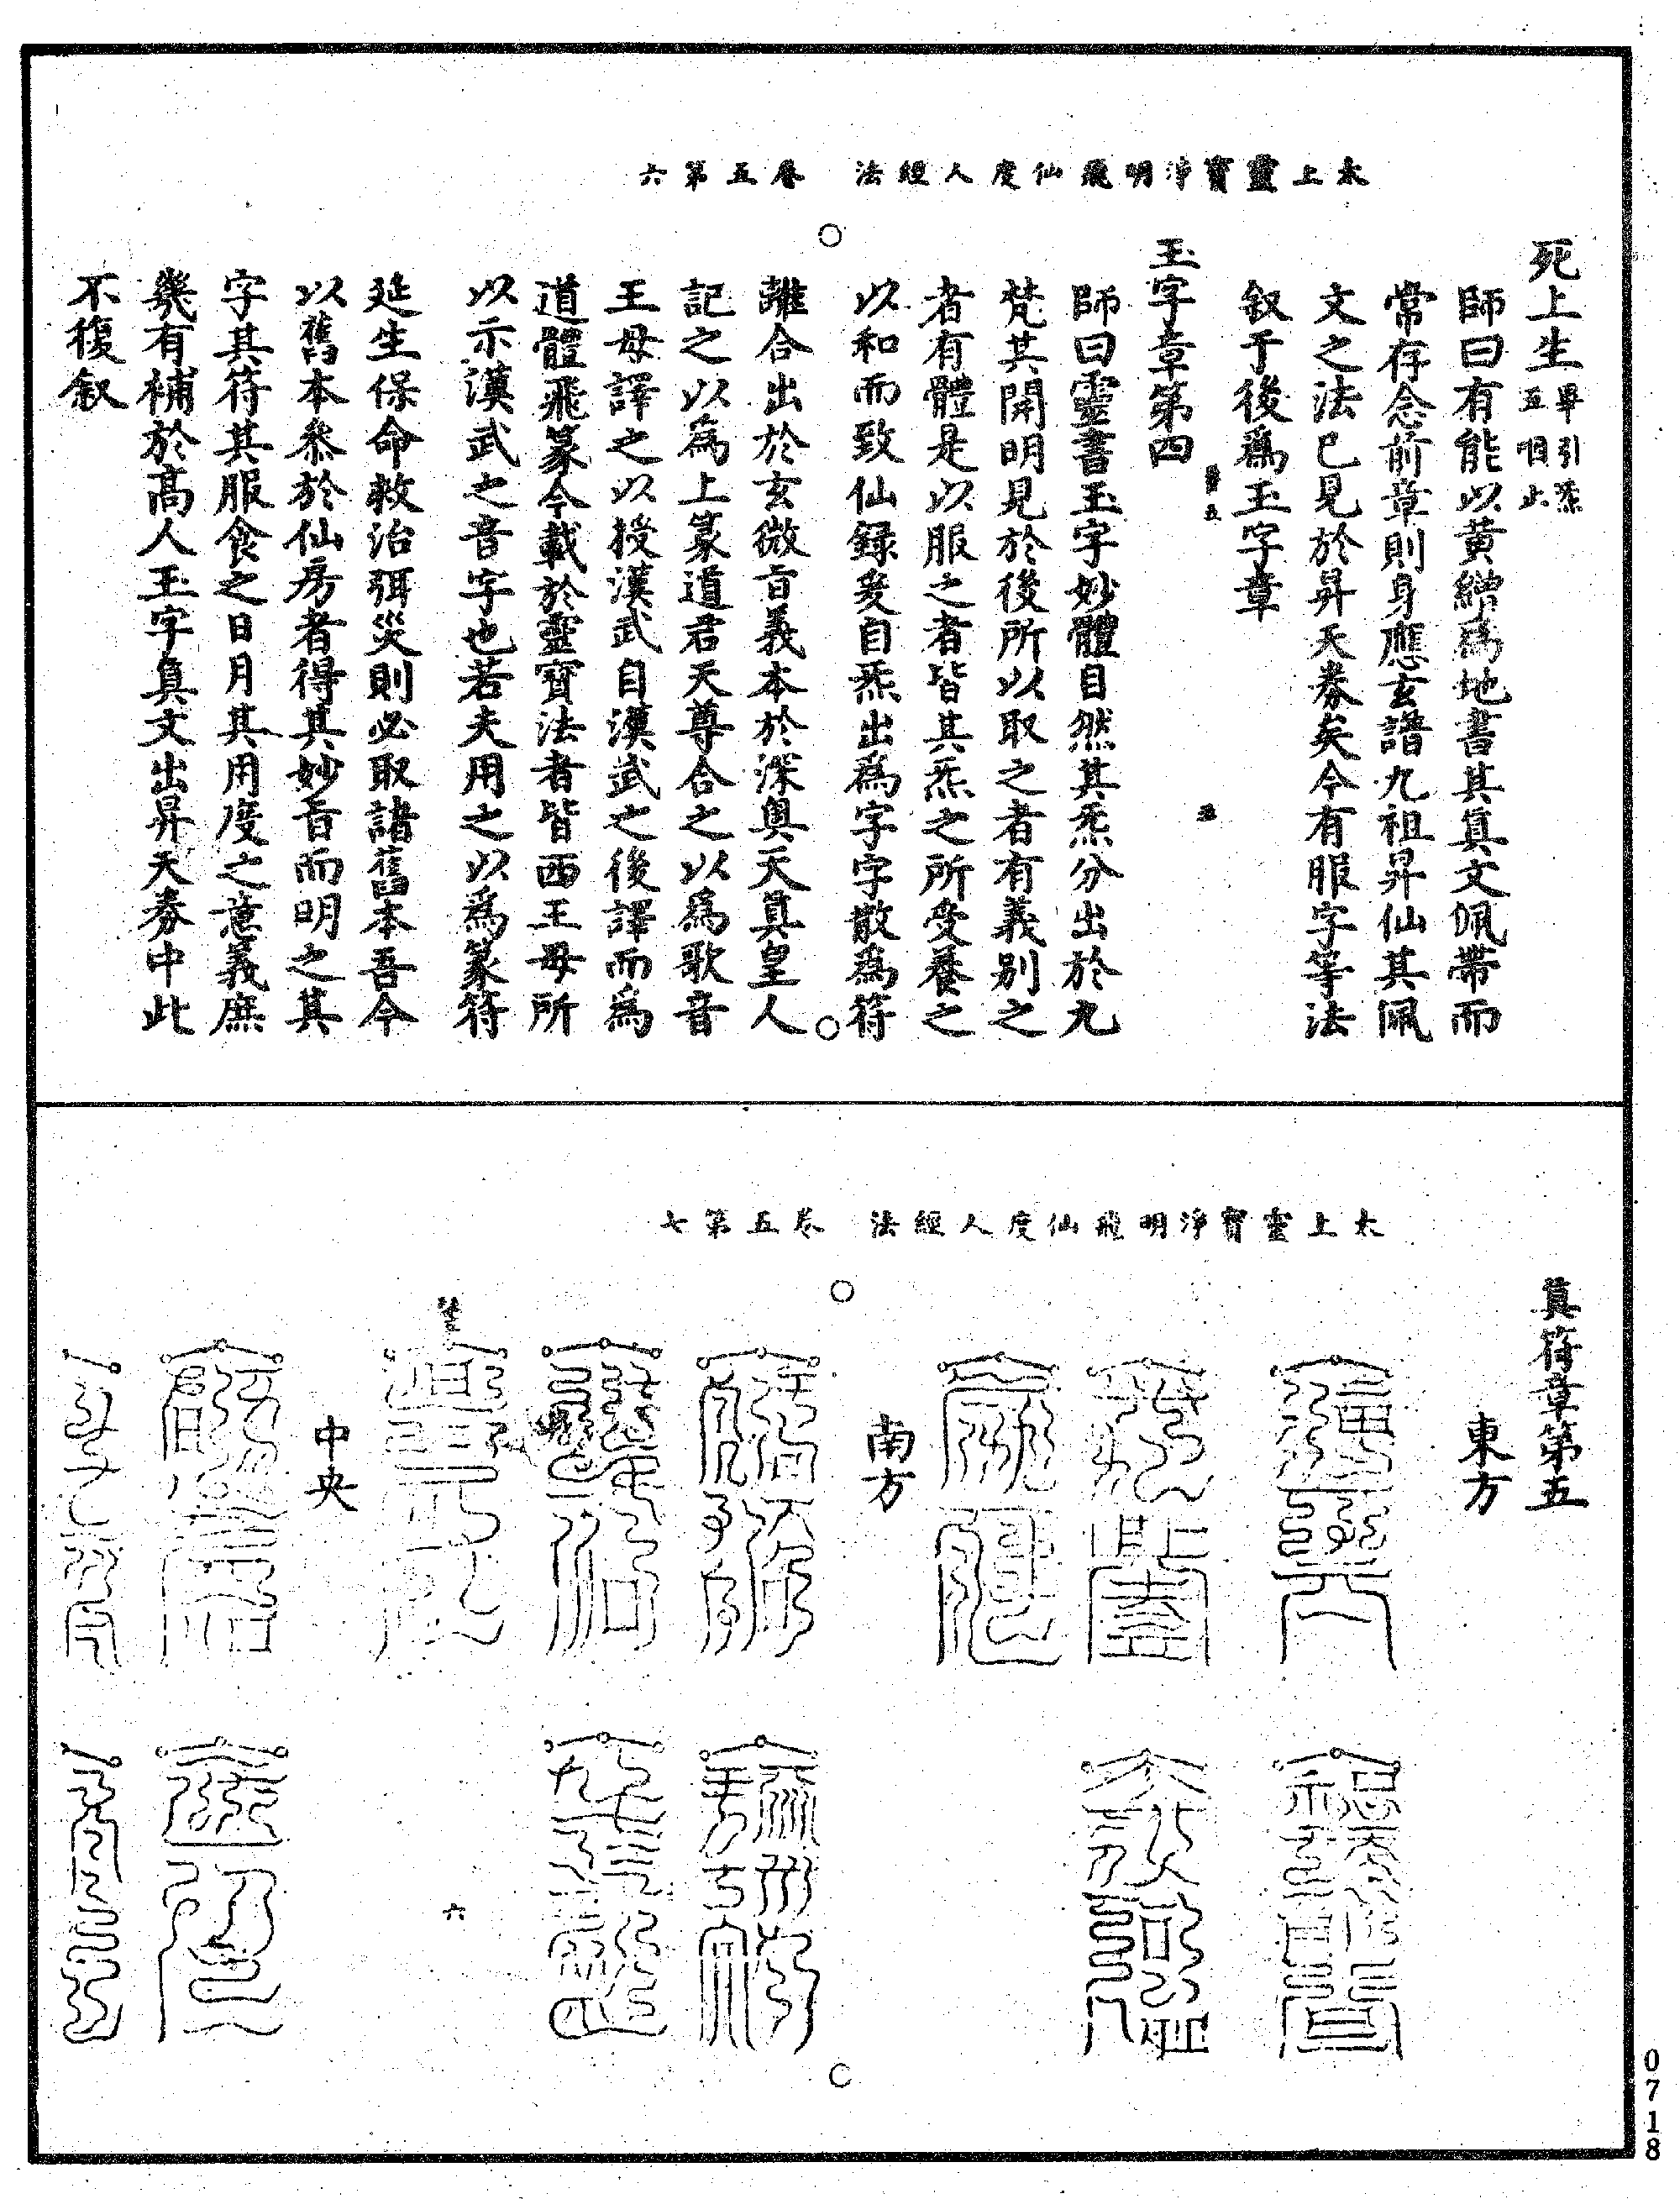 太上靈寶淨明飛仙度人經法　卷五第六
死上生畢引炁五咽止
師曰有能以黃繒爲地書其真文佩帶而
常存念前章則身應玄譜九祖昇仙其佩
文之法已見於昇天券矣今有服字等法
叙于後爲玉字章
玉字章第四
師曰靈書玉字妙體自然其炁分出於九
梵其開明見於後所以取之者有義别之
者有體是以服之者皆其炁之所受養之
以和而致仙録爰自炁出爲字字散爲符
離合出於玄微旨義本於深奧天真皇人
記之以爲上篆道君天尊合之以爲歌音
王母譯之以授漢武自漢武之後譯而爲
道體飛篆今載於靈寶法者皆西王母所
以示漢武之音字也若夫用之以爲篆符
延生保命救治弭災則必取諸舊本吾今
以舊本叅於仙房者得其妙旨而明之其
字其符其服食之日月其用度之意義庶
幾有補於高人玉字真文出昇天券中此
不復叙
五
太上靈寶淨明飛仙度人經法　卷五第七
真符章第五
東方
南方
中央
六
0718